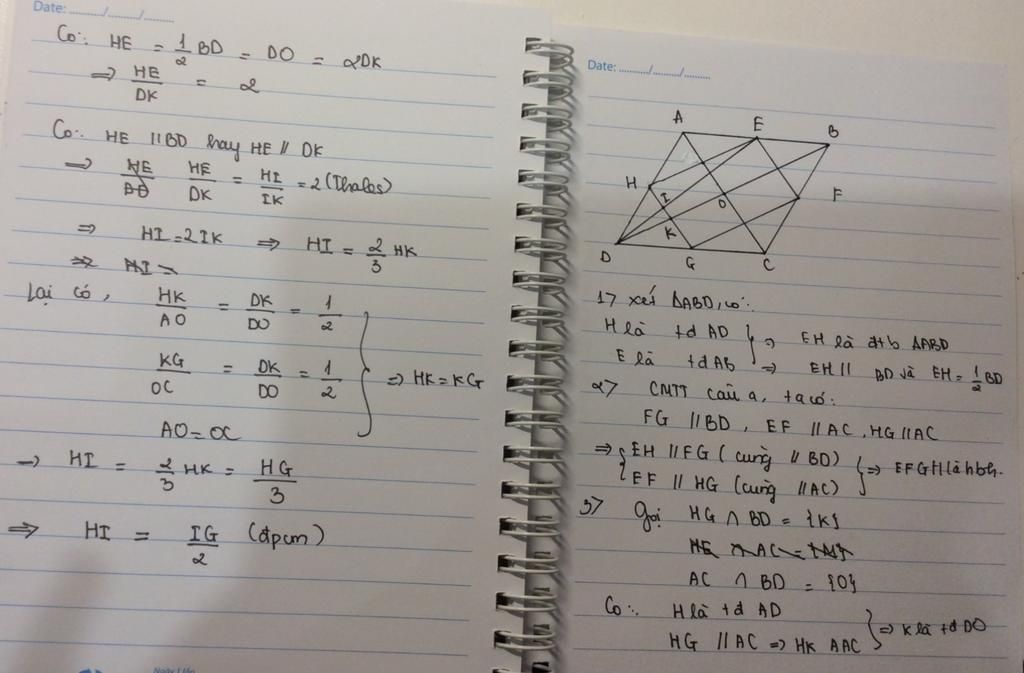 Date: ......../......../........
Có: HE = 1/2 BD = DO = 2DK
=> HE/DK = 2
Có: HE // BD hay HE // DK
=> HE/DK = HI/IK = 2 (Thales)
=> HI = 2IK => HI = 2/3 HK
Lại có, HK/AO = DK/DO = 1/2
KG/OC = DK/DO = 1/2 => HK = KG
AO = OC
=> HI = 2/3 HK = HG/3
=> HI = IG/2 (đpcm)
Date: ......../......../........
A E B
H I O F
D K G C
1> xét ΔABD, có:
H là tđ AD
E là tđ AB => EH là đtb ΔABD
=> EH // BD và EH = 1/2 BD
2> CMTT câu a, ta có:
FG // BD, EF // AC, HG // AC
=> EH // FG (cùng // BD)
EF // HG (cùng // AC) => EFGH là hbh.
3> Gọi HG ∩ BD = {K}
AC ∩ BD = {O}
Có: H là tđ AD
HG // AC => HK AAC => K là tđ DO